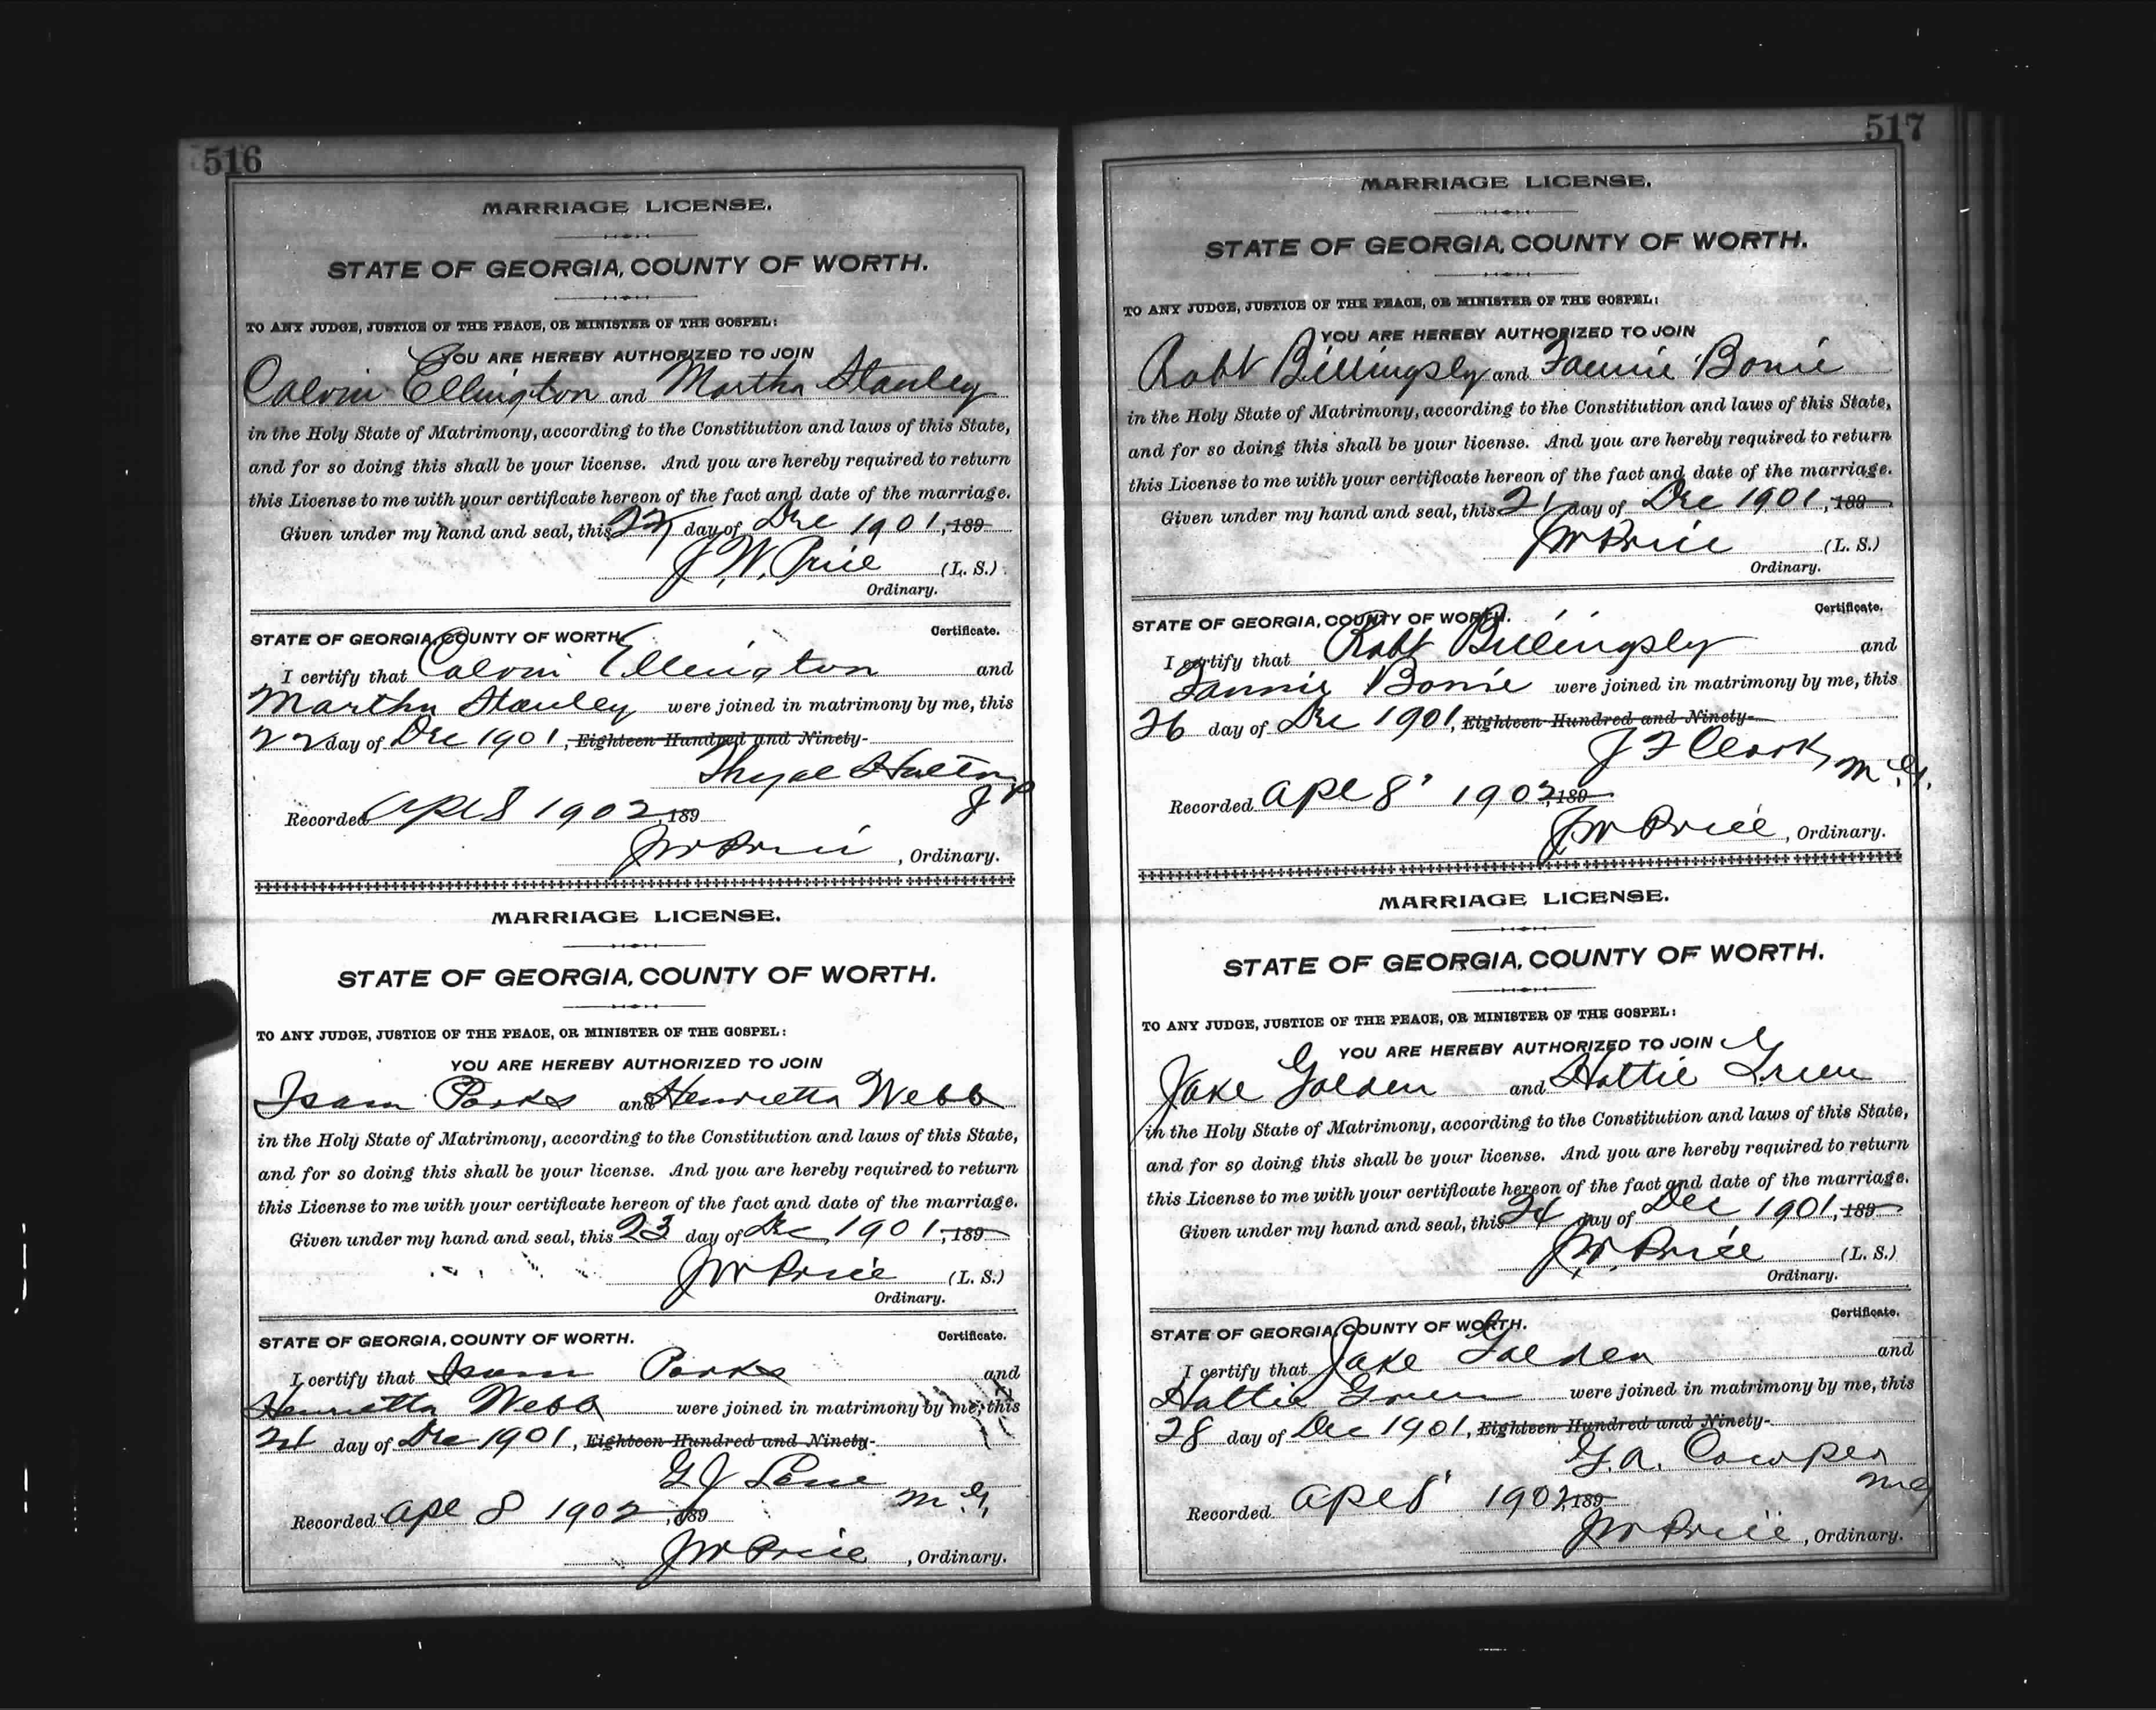 516
MARRIAGE LICENSE.
STATE OF GEORGIA, COUNTY OF WORTH.
TO ANY JUDGE, JUSTICE OF THE PEACE, OR MINISTER OF THE GOSPEL:
YOU ARE HEREBY AUTHORIZED TO JOIN
Calvin Ellington and Martha Stanley
in the Holy State of Matrimony, according to the Constitution and laws of this State,
and for so doing this shall be your license. And you are hereby required to return
this License to me with your certificate hereon of the fact and date of the marriage.
Given under my hand and seal, this 22 day of Dec 1901, 189
J. W. Price (L. S.)
Ordinary.
STATE OF GEORGIA, COUNTY OF WORTH. Certificate.
I certify that Calvin Ellington and
Martha Stanley were joined in matrimony by me, this
22 day of Dec 1901, Eighteen Hundred and Ninety-
J P
Recorded Apl 8 1902, 189
J W Price, Ordinary.
MARRIAGE LICENSE.
STATE OF GEORGIA, COUNTY OF WORTH.
TO ANY JUDGE, JUSTICE OF THE PEACE, OR MINISTER OF THE GOSPEL:
YOU ARE HEREBY AUTHORIZED TO JOIN
Isam Parks and Henrietta Webb
in the Holy State of Matrimony, according to the Constitution and laws of this State,
and for so doing this shall be your license. And you are hereby required to return
this License to me with your certificate hereon of the fact and date of the marriage.
Given under my hand and seal, this 23 day of Dec 1901, 189
J W Price (L. S.)
Ordinary.
STATE OF GEORGIA, COUNTY OF WORTH. Certificate.
I certify that Isam Parks and
Henrietta Webb were joined in matrimony by me, this
24 day of Dec 1901, Eighteen Hundred and Ninety-
G J Lane
M. G.
Recorded Apl 8 1902, 189
J W Price, Ordinary.
517
MARRIAGE LICENSE.
STATE OF GEORGIA, COUNTY OF WORTH.
TO ANY JUDGE, JUSTICE OF THE PEACE, OR MINISTER OF THE GOSPEL:
YOU ARE HEREBY AUTHORIZED TO JOIN
Robt Billingsly and Fannie Bonie
in the Holy State of Matrimony, according to the Constitution and laws of this State,
and for so doing this shall be your license. And you are hereby required to return
this License to me with your certificate hereon of the fact and date of the marriage.
Given under my hand and seal, this 21 day of Dec 1901, 189
J W Price (L. S.)
Ordinary.
STATE OF GEORGIA, COUNTY OF WORTH. Certificate.
I certify that Robt Billingsly and
Fannie Bonie were joined in matrimony by me, this
26 day of Dec 1901, Eighteen Hundred and Ninety-
J F Clark M. G.
Recorded Apl 8 1902, 189
J W Price, Ordinary.
MARRIAGE LICENSE.
STATE OF GEORGIA, COUNTY OF WORTH.
TO ANY JUDGE, JUSTICE OF THE PEACE, OR MINISTER OF THE GOSPEL:
YOU ARE HEREBY AUTHORIZED TO JOIN
Jake Golden and Hattie Green
in the Holy State of Matrimony, according to the Constitution and laws of this State,
and for so doing this shall be your license. And you are hereby required to return
this License to me with your certificate hereon of the fact and date of the marriage.
Given under my hand and seal, this 24 day of Dec 1901, 189
J. W. Price (L. S.)
Ordinary.
STATE OF GEORGIA, COUNTY OF WORTH. Certificate.
I certify that Jake Golden and
Hattie Green were joined in matrimony by me, this
28 day of Dec 1901, Eighteen Hundred and Ninety-
G. A. Cowper
M G
Recorded Apl 8 1902, 189
J W Price, Ordinary.